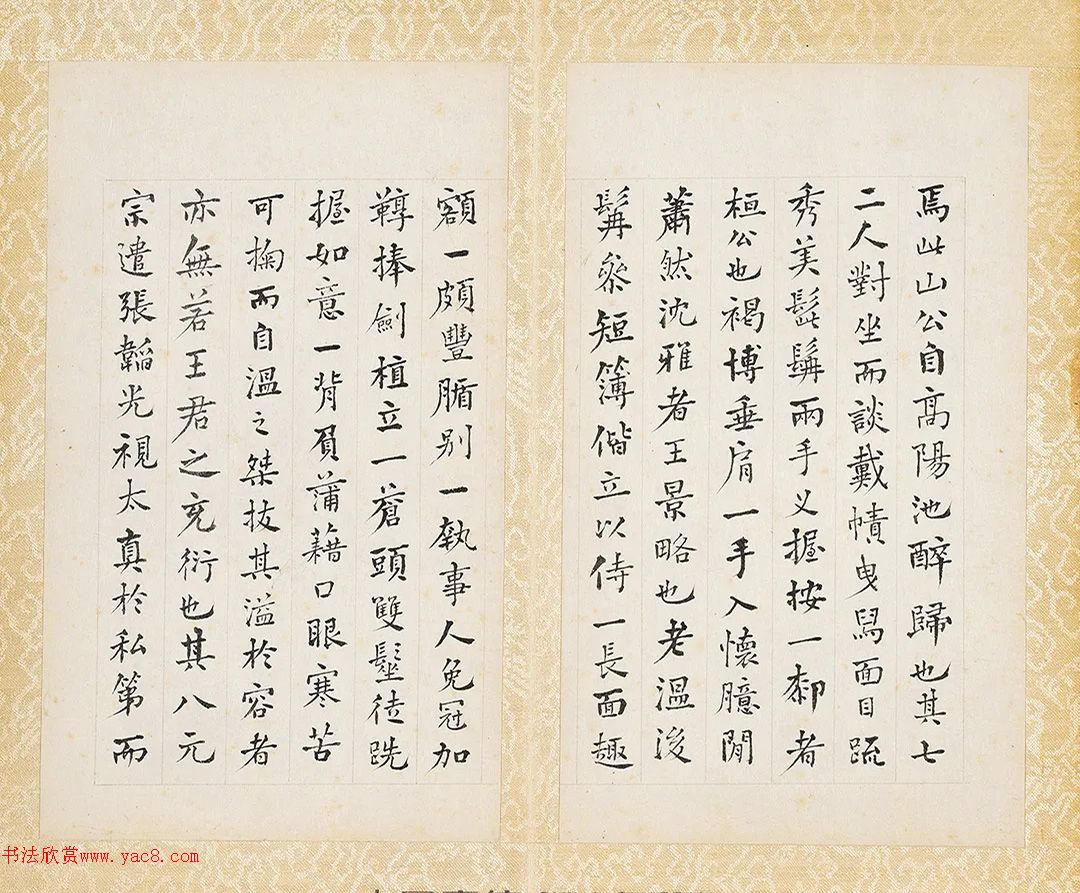 焉此山公自高陽池醉歸也其七
二人對坐而談戴幘曳舄面目踈
秀美髭髯兩手义握按一膝者
桓公也褐博垂肩一手入懷臆閒
蕭然沈雅者王景略也老溫後
髯參短簿偕立以侍一長面趣
額一頗豐腯别一執事人免冠加
鞾捧劍植立一蒼頭雙髽徒跣
握如意一背負蒲藉口眼寒苦
可掬而自溫之桀㧞其溢於容者
亦無若王君之充衍也其八元
宗遣張韜光視太真於私第而
书法欣赏www.yac8.com